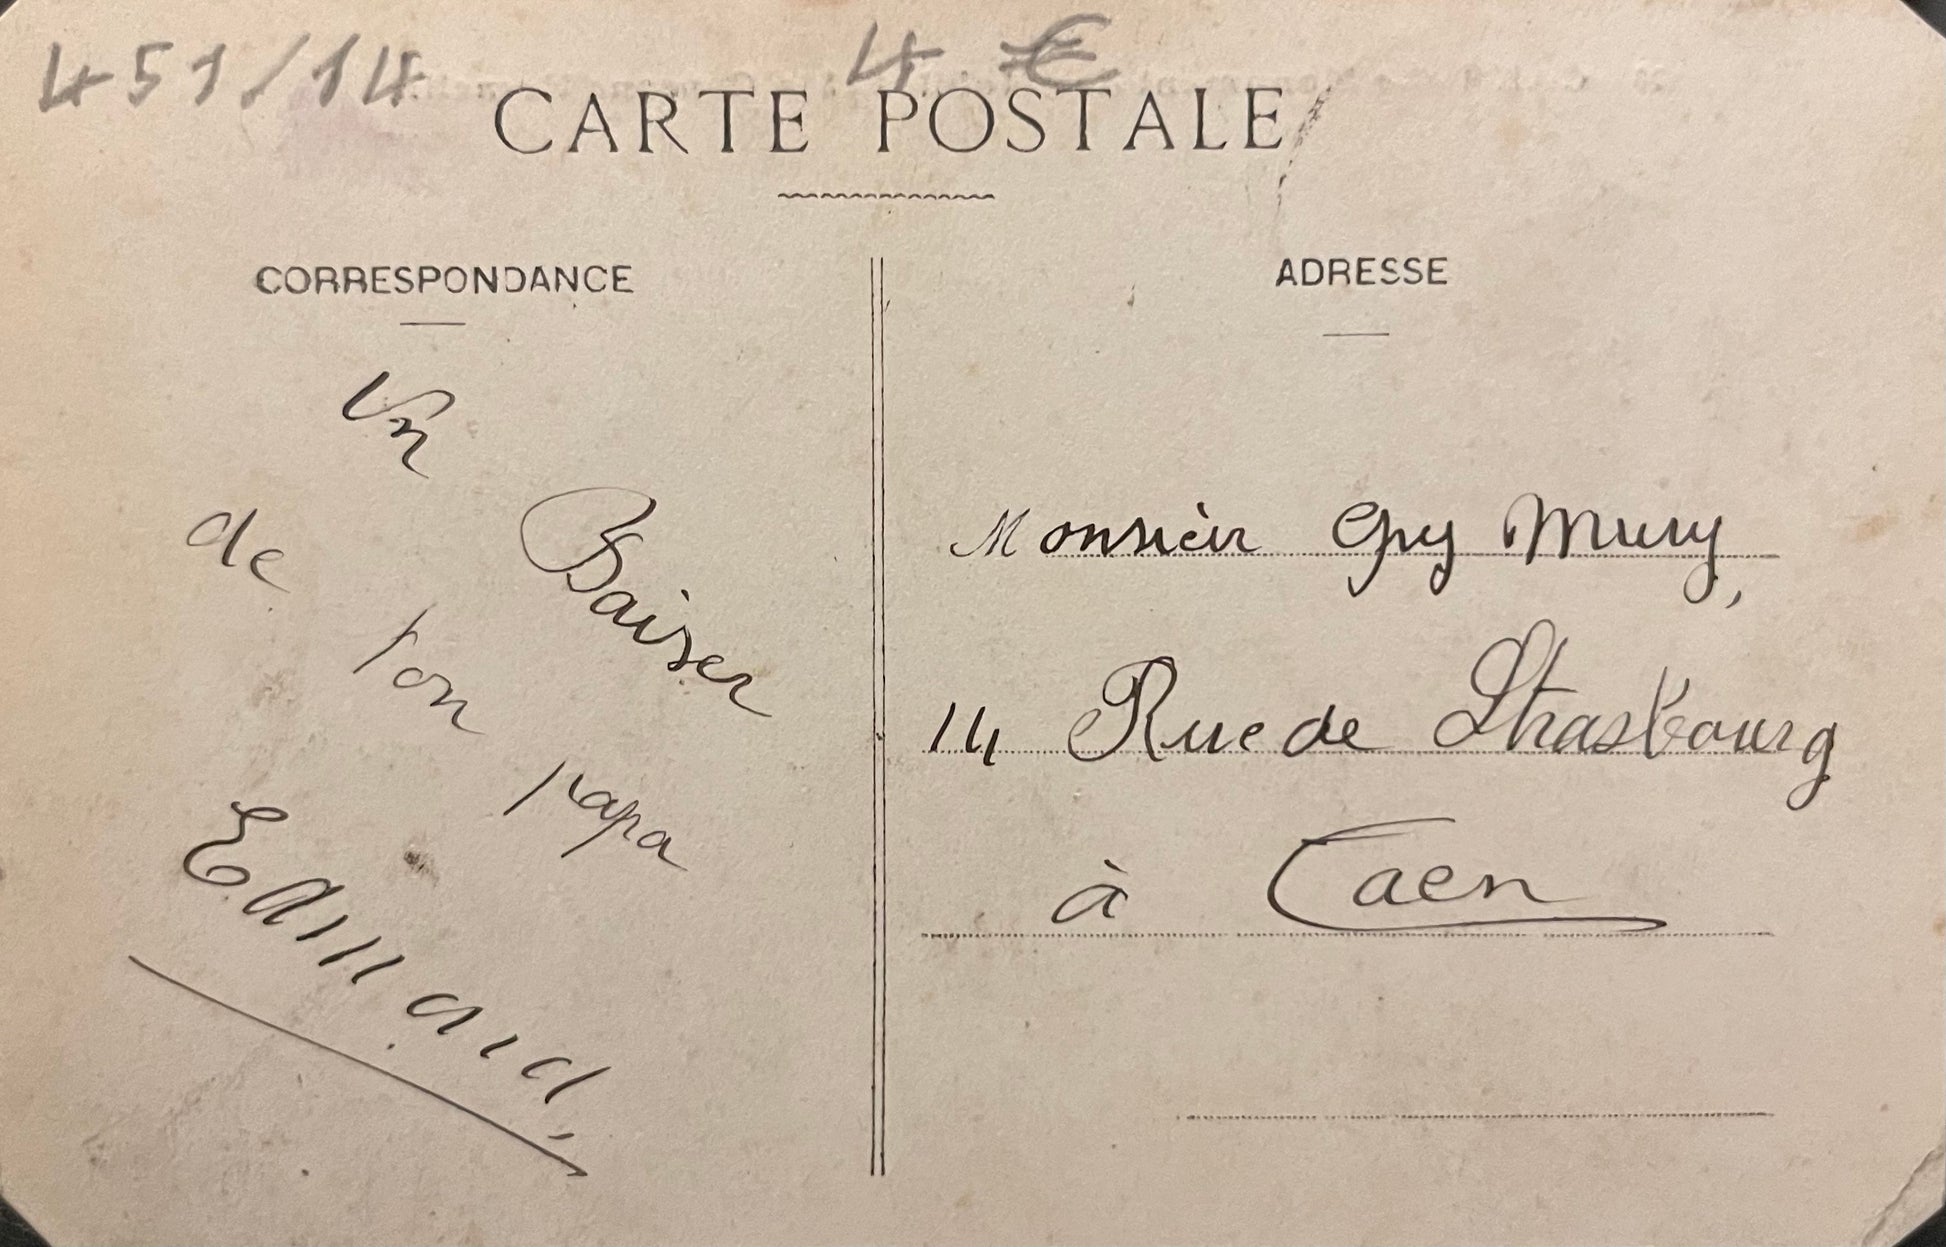 451/14
4 €
CARTE POSTALE
CORRESPONDANCE
Un
Baiser
de
ton
papa
ADRESSE
Monsieur Guy Mury,
14 Rue de Strasbourg
à Caen